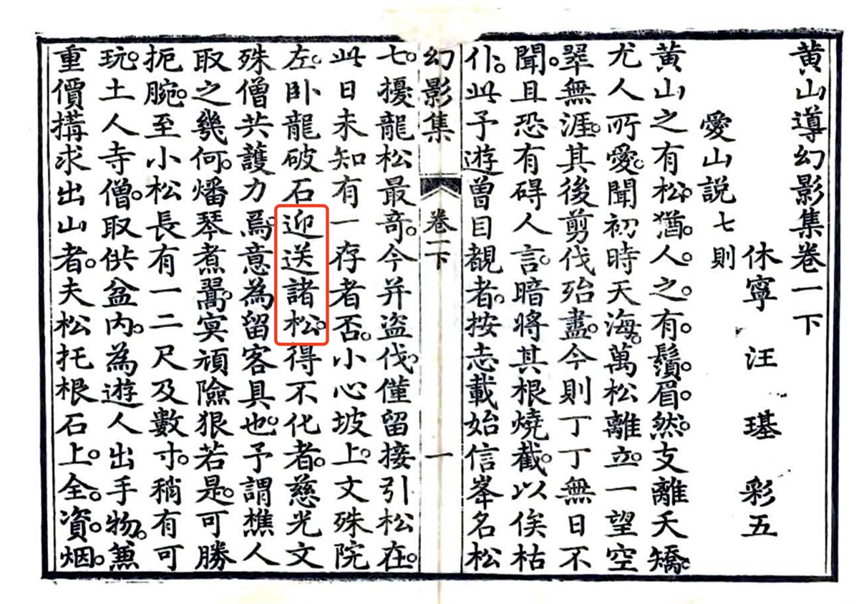 黄山導幻影集卷一下
休寧 汪 璂 彩五
愛山說七則
黄山之有松猶人之有鬚眉然支離夭矯
尤人所愛聞初時天海萬松離立一望空
翠無涯其後剪伐殆盡今則丁丁無日不
聞且恐有碍人言暗將其根燒截以俟枯
仆此予遊曾目覩者按志載始信峯名松
幻影集 卷一下 一
七擾龍松最奇今并盜伐僅留接引松在
此日未知有一存者否小心坡上文殊院
左卧龍破石迎送諸松得不化者慈光文
殊僧共護力焉意為留客具也予謂樵人
取之幾何燔琴煮鶴㝠頑險狠若是可勝
扼腕至小松長有一二尺及數寸稍有可
玩土人寺僧取供盆内為遊人出手物兼
重價搆求出山者夫松托根石上全資烟